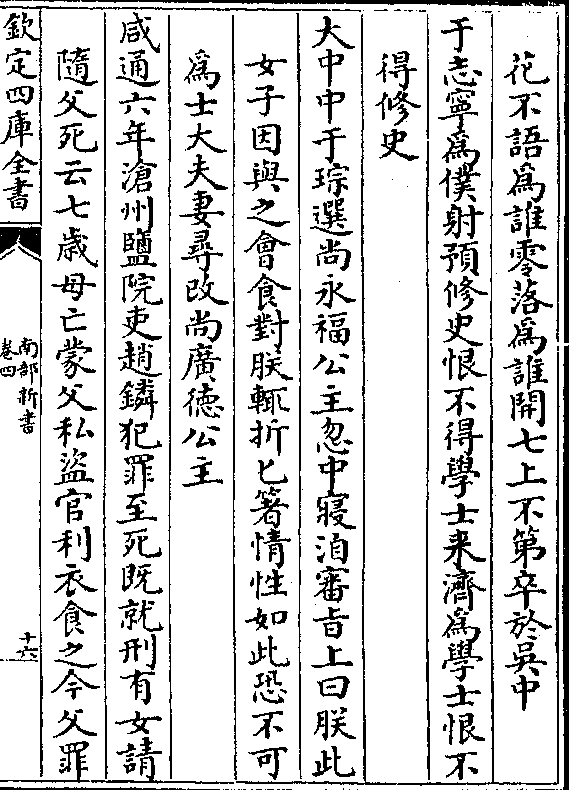 花不語為誰零落為誰開七上不第卒於吳中
于志寧為僕射預修史恨不得學士来濟為學士恨不
得修史
大中中于琮選尚永福公主忽中寢洎審㫖上曰朕此
女子因與之會食對朕輒折匕箸情性如此恐不可
為士大夫妻尋改尚廣徳公主
咸通六年滄州鹽院吏趙鏻犯罪至死既就刑有女請
隨父死云七歳母亡蒙父私盜官利衣食之今父罪
欽定四庫全書
南部新書
卷四
十六